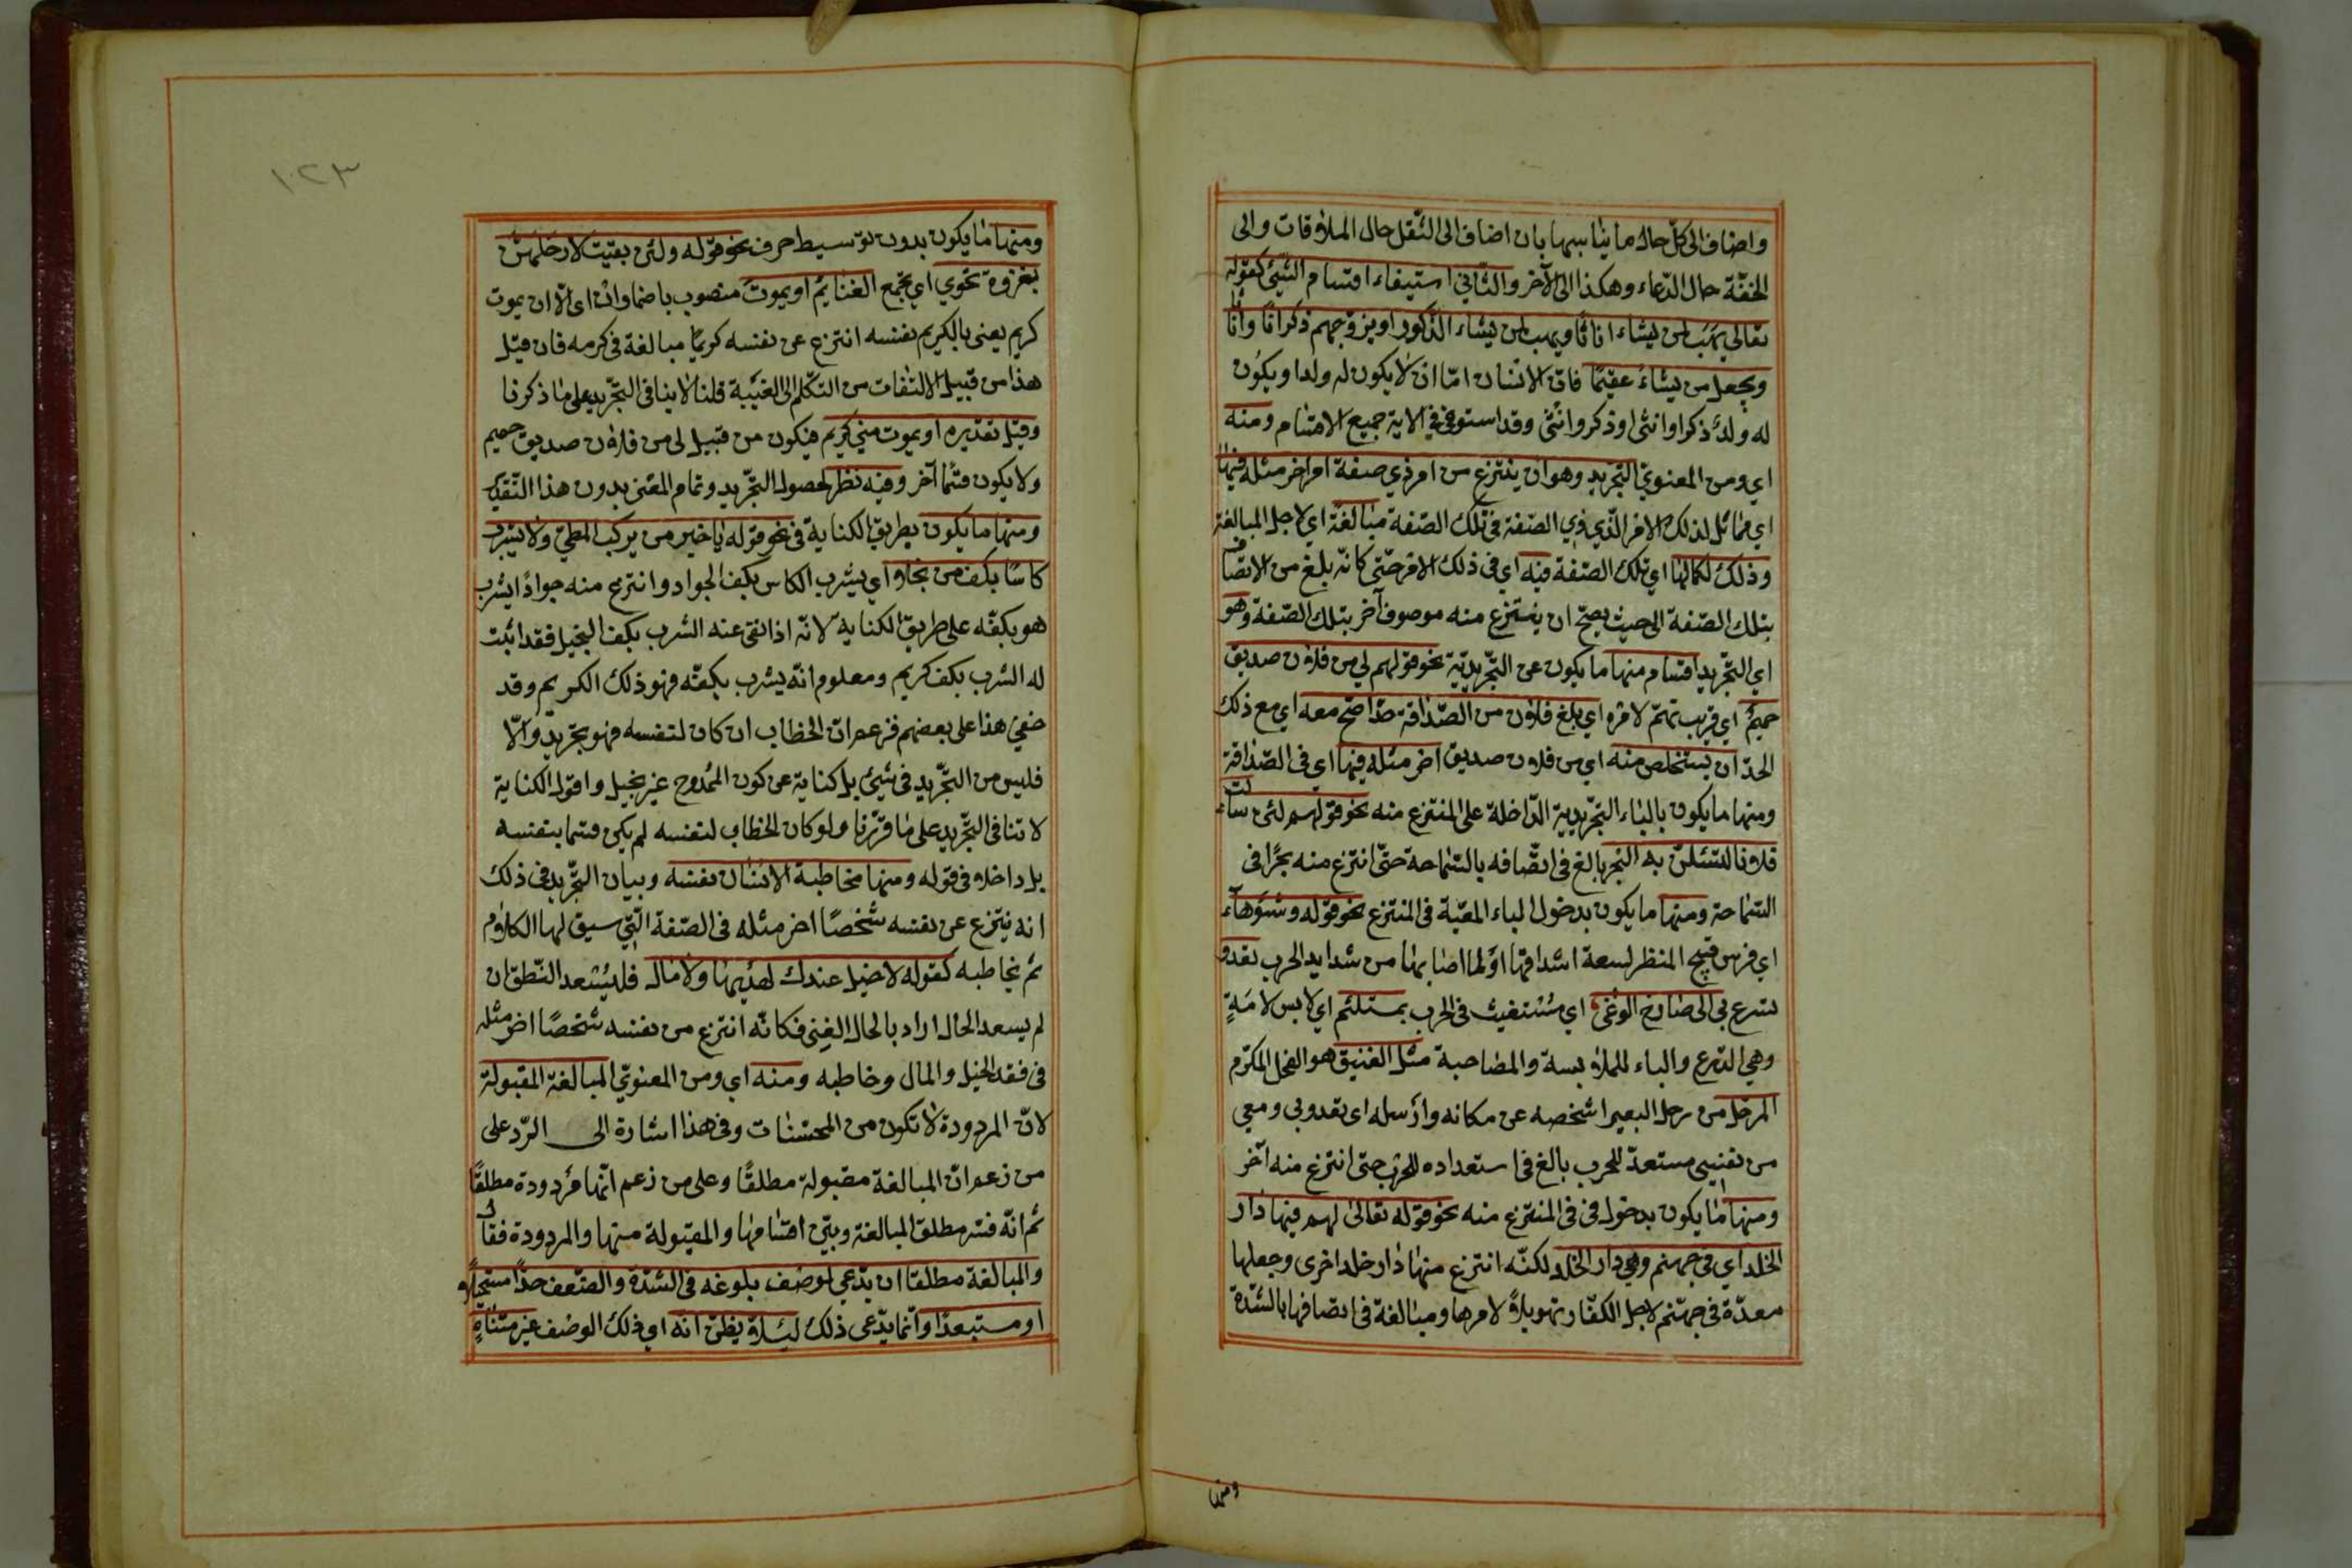 واضاف الى كلّ حال ما يناسبها بان اضاف الى الثّقل حال الملاقات والى
الخفّة حال الدّعاء وهكذا الى الآخر والثّاني استيفاء اقسام الشّيئ كقوله
تعالى يهب لمن يشاء اناثا ويهب لمن يشاء الذّكور او يزوّجهم ذكرانا واناثا
ويجعل من يشاء عقيما فانّ الانسان امّا ان لا يكون له ولد او يكون
له ولد ذكر او انثى او ذكر وانثى وقد استوفى في الاية جميع الاقسام ومنه
اي ومن المعنويّ التّجريد وهو ان ينتزع من امر ذي صفة امر اخر مثله فيها
اي مماثل لذلك الامر الّذي ذي الصّفة في تلك الصّفة مبالغة اي لاجل المبالغة
وذلك لكمالها اي تلك الصّفة فيه اي في ذلك الامر حتّى كانّه بلغ من الاتصاف
بتلك الصّفة الى حيث يصحّ ان ينتزع منه موصوف آخر بتلك الصّفة وهو
اي التّجريد اقسام منها ما يكون عن التّجريديّة نحو قولهم لي من فلان صديق
حميم اي قريب تهتمّ لامره اي بلغ فلان من الصّداقة حدّا صحّ معه اي مع ذلك
الحدّ ان يستخلص منه اي من فلان صديق اخر مثله فيها اي في الصّداقة
ومنها ما يكون بالباء التّجريدية الدّاخلة على المنتزع منه نحو قولهم لئن سالت
فلانا لتسئلنّ به البحر بالغ في اتّصافه بالسّماحة حتّى انتزع منه بحرًا في
السّماحة ومنها ما يكون بدخول الباء المعيّة في المنتزع نحو قوله وشوهآء
اي فرس قبيح المنظر لسعة اشداقها او لما اصابها من شدايد الحرب تعدو
تسرع بي الى صارخ الوغى اي مستغيث في الحرب بمستلئم اي لابس لامةٍ
وهي الدّرع والباء للملابسة والمصاحبة مثل الفنيق هو الفحل المكرّم
المرحّل من رحل البعير اشخصه عن مكانه وارسله اى تعدو بي ومعي
من نفسي مستعدّ للحرب بالغ في استعداده للحرب حتى انتزع منه آخر
ومنها ما يكون بدخول في في المنتزع منه نحو قوله تعالى لهم فيها دار
الخلد اي في جهنم وهي دار الخلد لكنّه انتزع منها دار خلد اخرى وجعلها
معدّة في جهنّم لاجل الكفّار تهويلاً لامرها ومبالغة في اتصافها بالشّدّة
ومنها
١٠٢٣
ومنها ما يكون بدون توسيط حرف نحو قوله ولئن بقيت لارحلهنّ
بغزوة نحوي اي تجمع الغنايم او يموت منصوب باضمار ان اى الّا ان يموت
كريم يعنى بالكريم نفسه انتزع عن نفسه كريما مبالغة في كرمه فان قيل
هذا من قبيل الالتفات من التكلّم الى الغيبة قلنا لا ينافي التّجريد على ما ذكرنا
وقيل تقديره او يموت مني كريم فيكون من قبيل لى من فلان صديق حميم
ولا يكون قسما آخر وفيه نظر لحصول التّجريد وتمام المعنى بدون هذا التّقدير
ومنها ما يكون بطريق الكناية في نحو قوله يا خير من يركب المطيّ ولا يشرب
كاسا بكف من بخلا اي يشرب الكاس بكف الجواد وانتزع منه جوادا يشرب
هو بكفّه على طريق الكناية لانّه اذا نفى عنه الشرب بكف البخيل فقد اثبت
له الشرب بكف كريم ومعلوم انّه يشرب بكفّه فهو ذلك الكريم وقد
خفي هذا على بعضهم فزعم انّ الخطاب ان كان لنفسه فهو تجريد والّا
فليس من التّجريد في شيئ بل كناية عن كون الممدوح غير بخيل واقول الكناية
لا تنافى التّجريد على ما قرّرنا ولو كان الخطاب لنفسه لم يكن قسما بنفسه
بل داخلا في قوله ومنها مخاطبة الانسان نفسه وبيان التّجريد في ذلك
انه ينتزع عن نفسه شخصًا اخر مثله في الصّفة الّتي سيق لها الكلام
ثم يخاطبه كقوله لا خيل عندك تهديها ولا مال فليسعد النّطق ان
لم يسعد الحال اراد بالحال الغنى فكانّه انتزع من نفسه شخصًا اخر مثله
في فقد الخيل والمال وخاطبه ومنه اي ومن المعنويّ المبالغة المقبولة
لانّ المردودة لا تكون من المحسّنات وفي هذا اشارة الى الرّد على
من زعم انّ المبالغة مقبولة مطلقًا وعلى من زعم انّها مردودة مطلقًا
ثم انّه فسّر مطلق المبالغة وبيّن اقسامها والمقبولة منها والمردودة فقال
والمبالغة مطلقا ان يدّعي لوصف بلوغه في الشدّة والضّعف حدّا مستحيلا
او مستبعدًا وانّما يدّعى ذلك لئلاّ يظنّ انّه اي ذلك الوصف غير متناهٍ